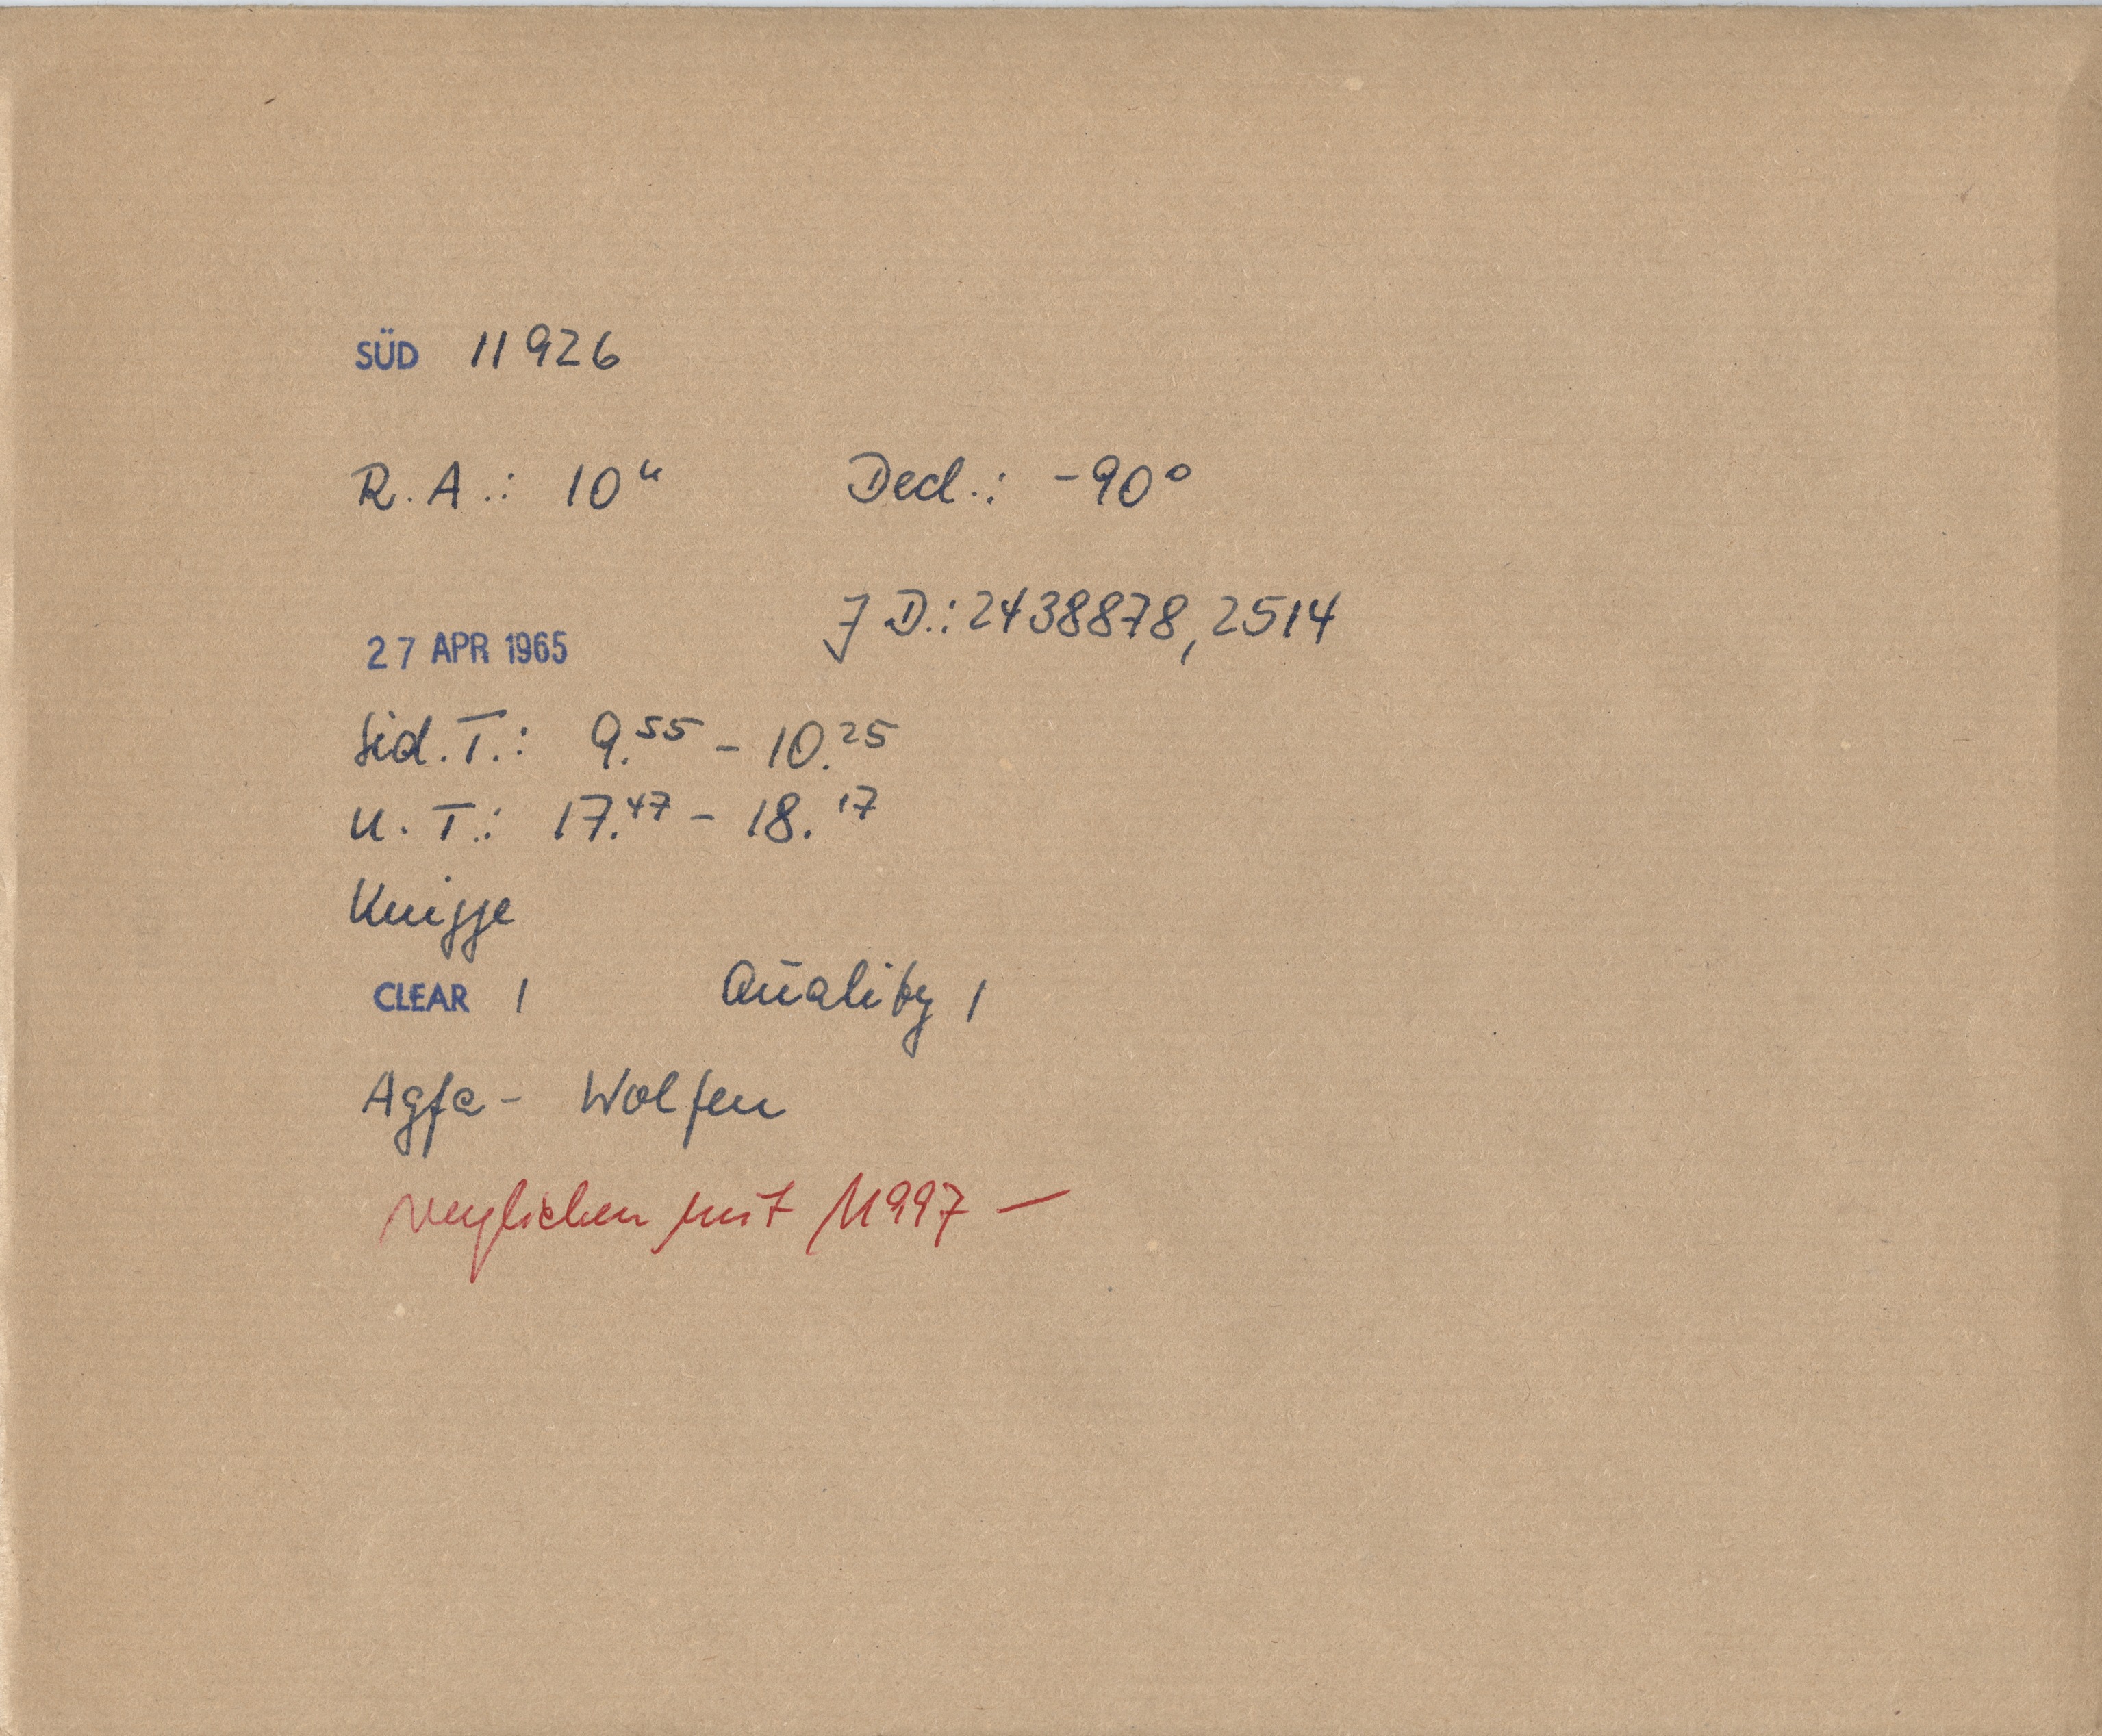 SÜD 11926
R.A.: 10ʰ Decl.: -90°
J.D.: 2438878,2514
27 APR 1965
Sid.T.: 9.⁵⁵ - 10.²⁵
U.T.: 17.⁴⁷ - 18.¹⁷
Knigge
CLEAR 1 Quality 1
Agfa - Wolfen
verglichen mit 11997 —